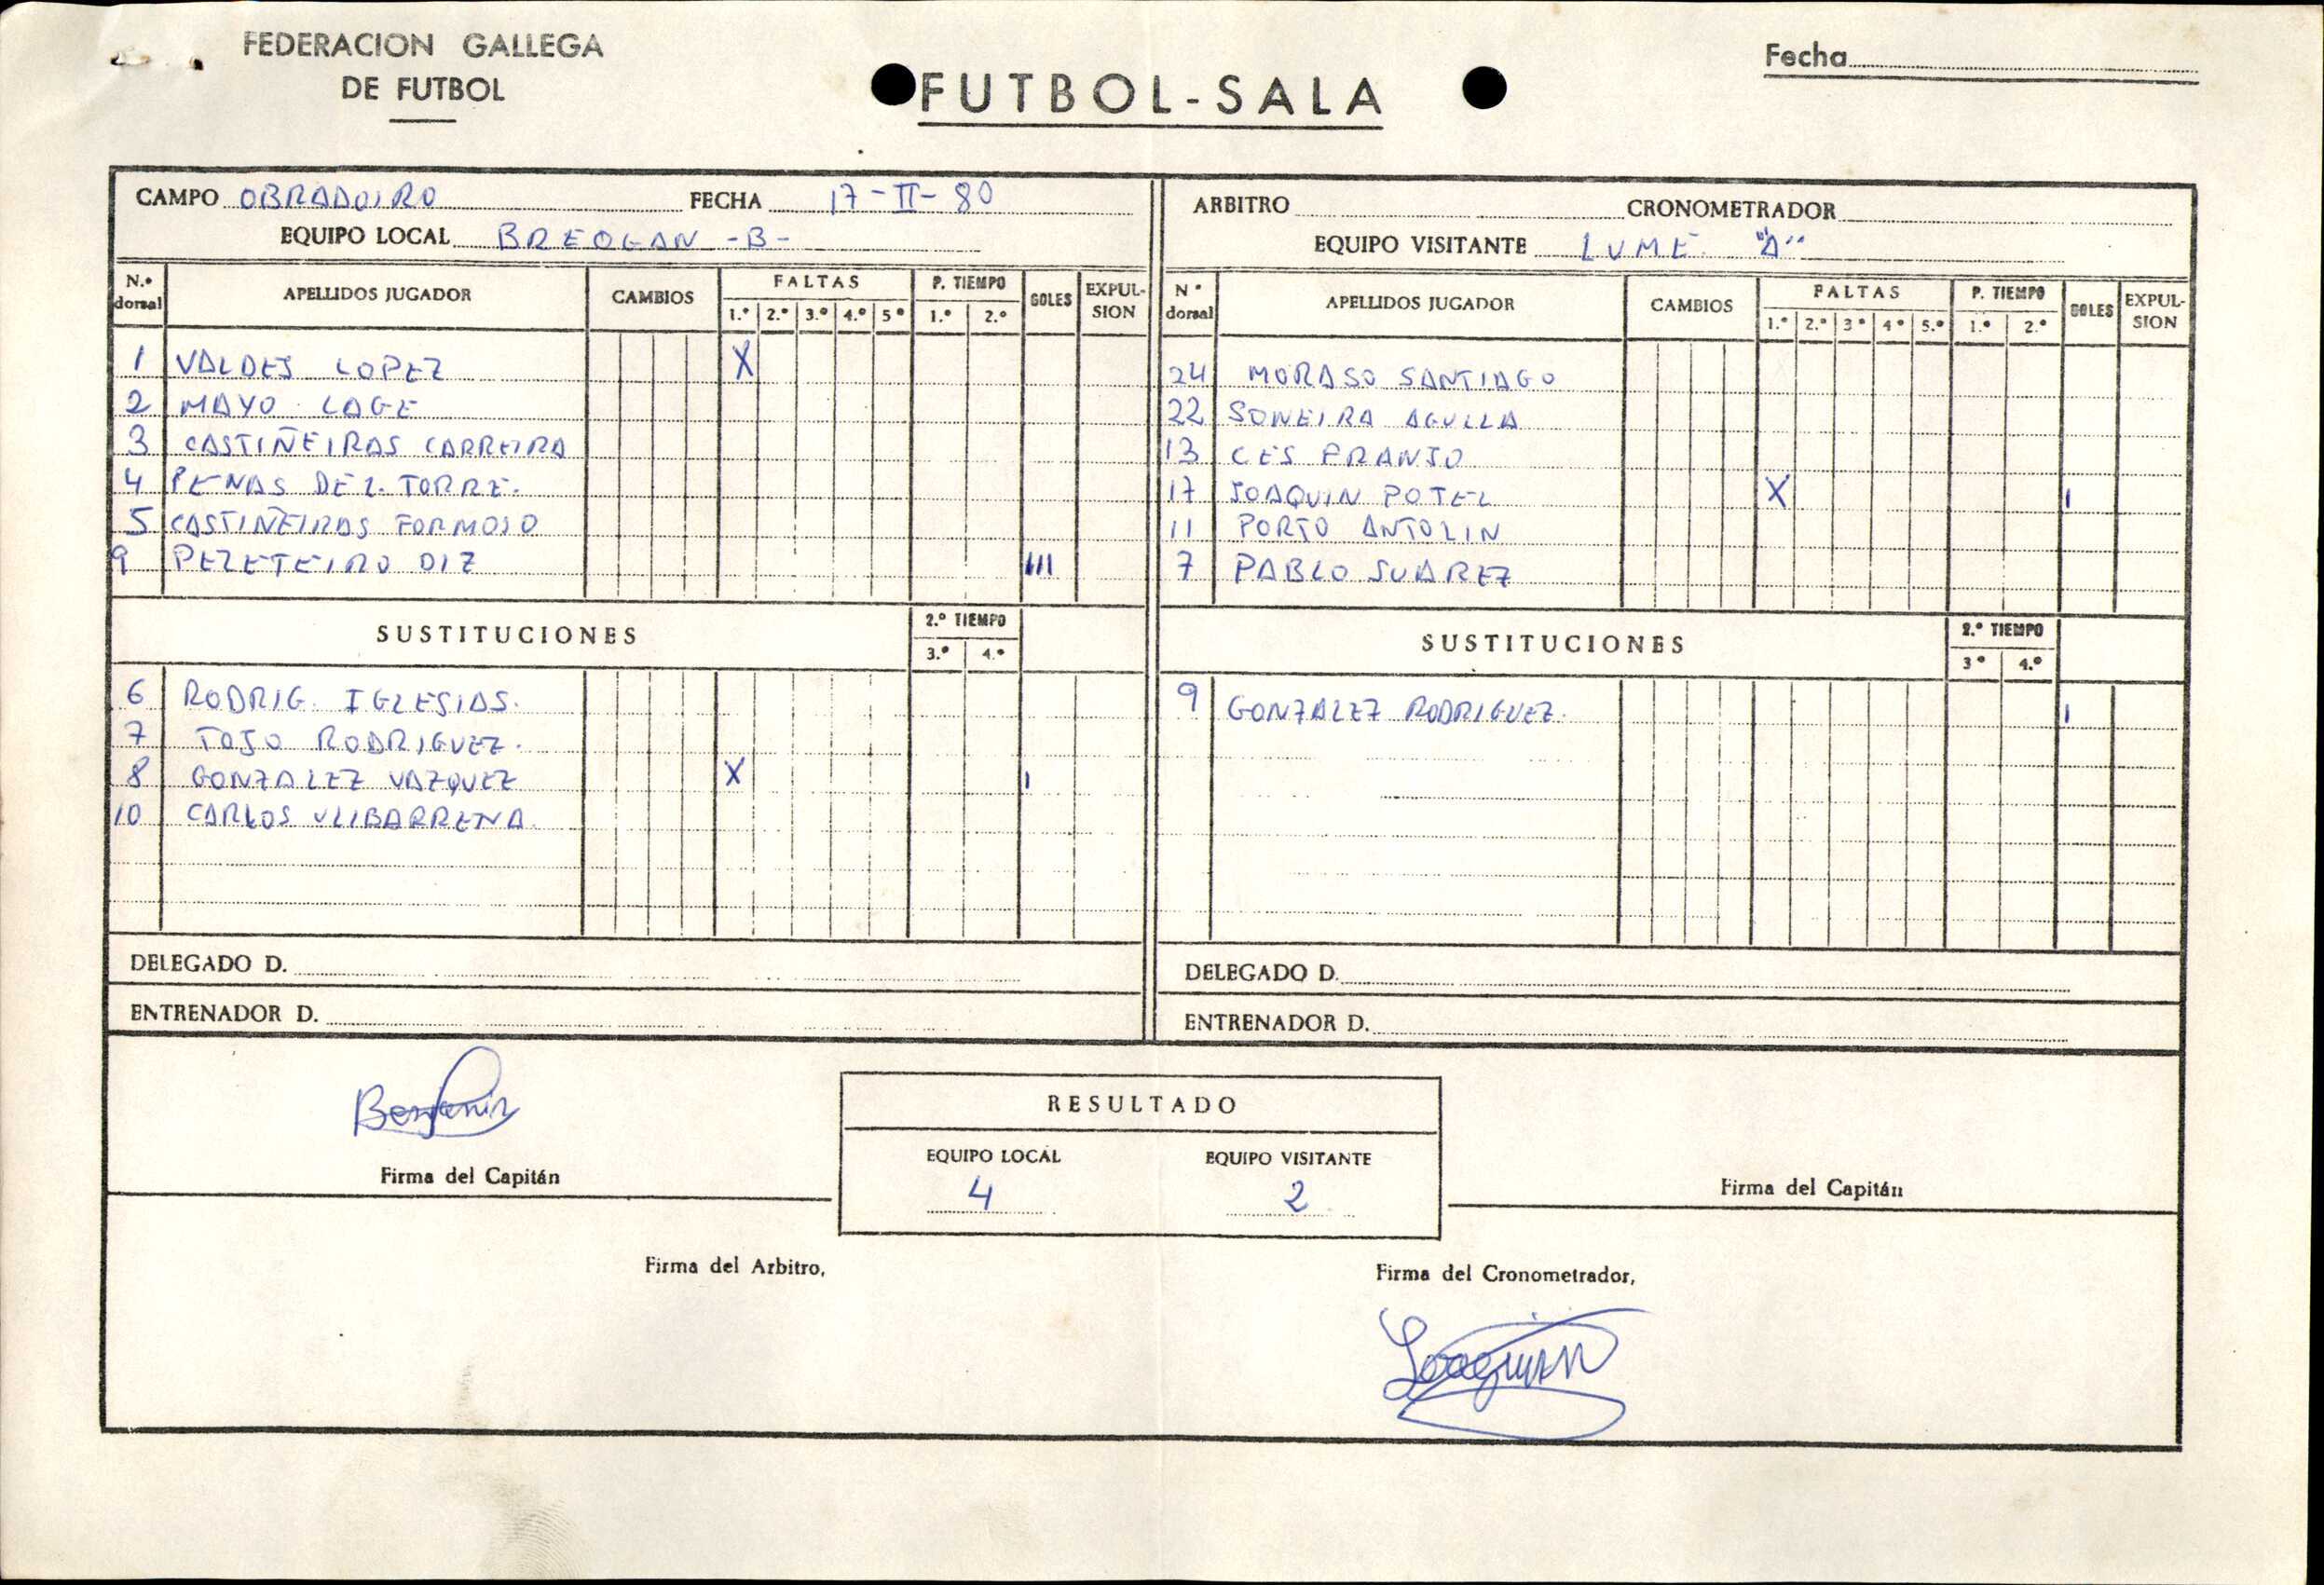 FEDERACION GALLEGA
DE FUTBOL
FUTBOL-SALA
Fecha
CAMPO OBRADOIRO FECHA 17-II-80
EQUIPO LOCAL BREOGAN -B-
N.º dorsal APELLIDOS JUGADOR CAMBIOS FALTAS 1.ª 2.ª 3.ª 4.ª 5ª P. TIEMPO 1.º 2.º GOLES EXPULSION
1 VALDES LOPEZ X
2 MAYO LAGE
3 CASTIÑEIRAS CARREIRA
4 PENAS DE L. TORRE.
5 CASTIÑEIRAS FORMOSO
9 PEZETEIRO DIZ III
SUSTITUCIONES 2.º TIEMPO 3.º 4.º
6 RODRIG. IGLESIAS.
7 TOJO RODRIGUEZ.
8 GONZALEZ VAZQUEZ X I
10 CARLOS ULIBARRENA.
DELEGADO D.
ENTRENADOR D.
ARBITRO CRONOMETRADOR
EQUIPO VISITANTE LUME "A"
Nº dorsal APELLIDOS JUGADOR CAMBIOS FALTAS 1.ª 2.ª 3ª 4ª 5.ª P. TIEMPO 1.º 2.º GOLES EXPULSION
24 MORASO SANTIAGO
22 SONEIRA AGULLA
13 CES FRANJO
17 JOAQUIN POTEL X I
11 PORTO ANTOLIN
7 PABLO SUAREZ
SUSTITUCIONES 2.º TIEMPO 3º 4.º
9 GONZALEZ RODRIGUEZ. I
DELEGADO D.
ENTRENADOR D.
Benjamin
Firma del Capitán
RESULTADO
EQUIPO LOCAL EQUIPO VISITANTE
4 2
Firma del Capitán
Firma del Arbitro,
Firma del Cronometrador,
Joaquin